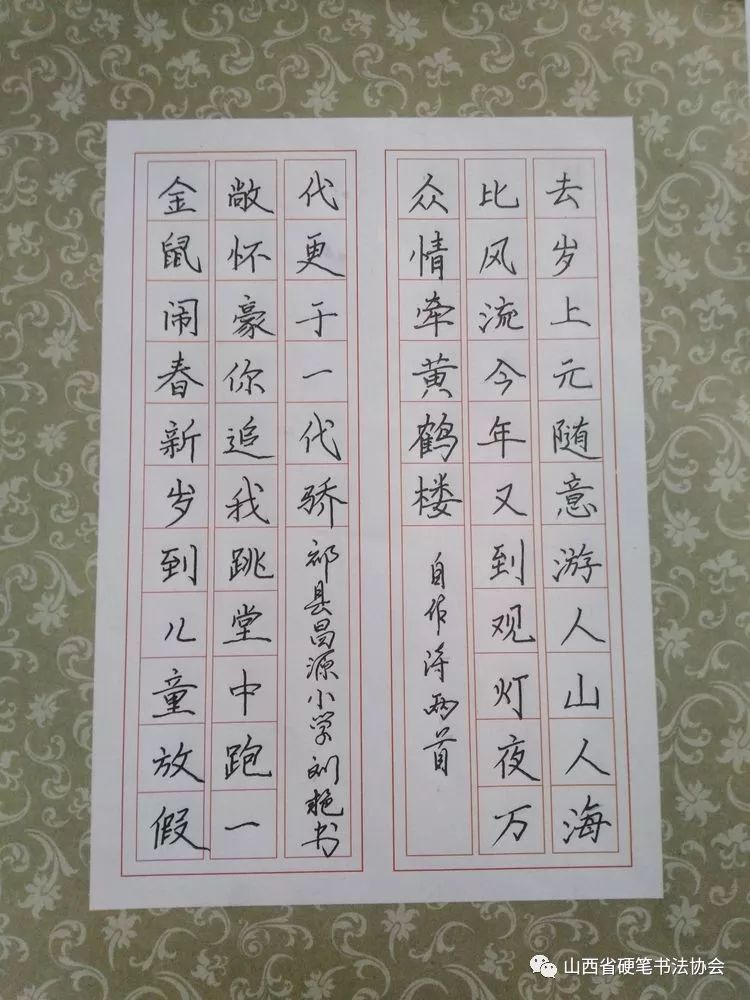 去岁上元随意游人山人海
比风流今年又到观灯夜万
众情牵黄鹤楼 自作诗两首
金鼠闹春新岁到儿童放假
敞怀豪你追我跳堂中跑一
代更于一代骄 祁县昌源小学刘艳书
山西省硬笔书法协会